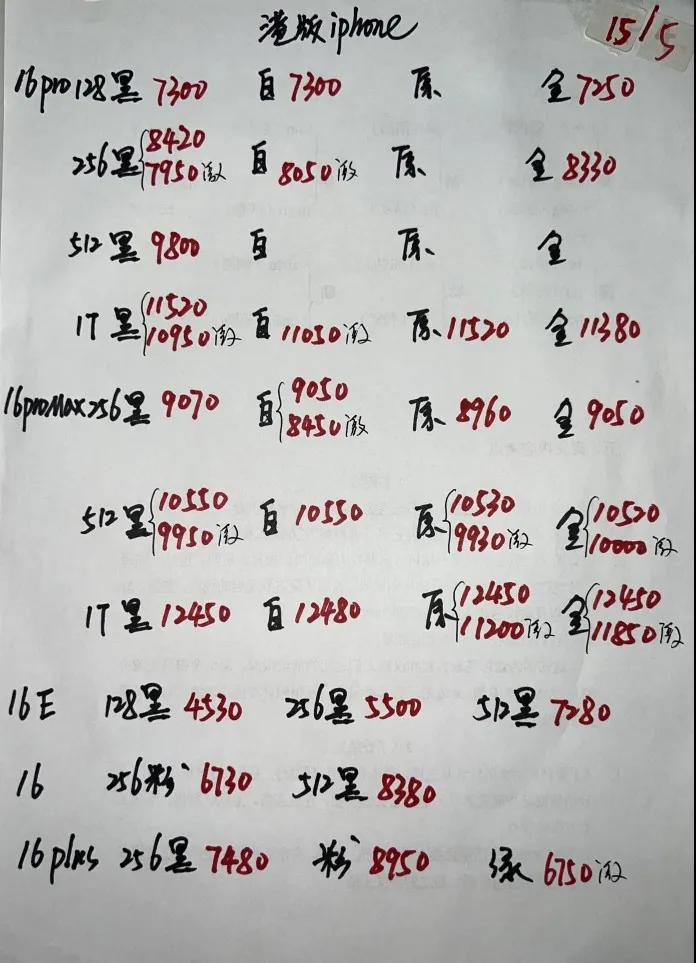 港版iphone 15/5
16pro 128黑 7300 白 7300 原 金 7250
256黑 {8420 7950激 白 8050激 原 金 8330
512黑 9800 白 原 金
1T 黑 {11520 10950激 白 11050激 原 11520 金 11380
16proMax 256黑 9070 白 {9050 8450激 原 8960 金 9050
512黑 {10550 9950激 白 10550 原 {10530 9930激 金 {10520 10000激
1T 黑 12450 白 12480 原 {12450 11200激 金 {12450 11850激
16E 128黑 4530 256黑 5500 512黑 7280
16 256粉 6730 512黑 8380
16plus 256黑 7480 粉 8950 绿 6750激